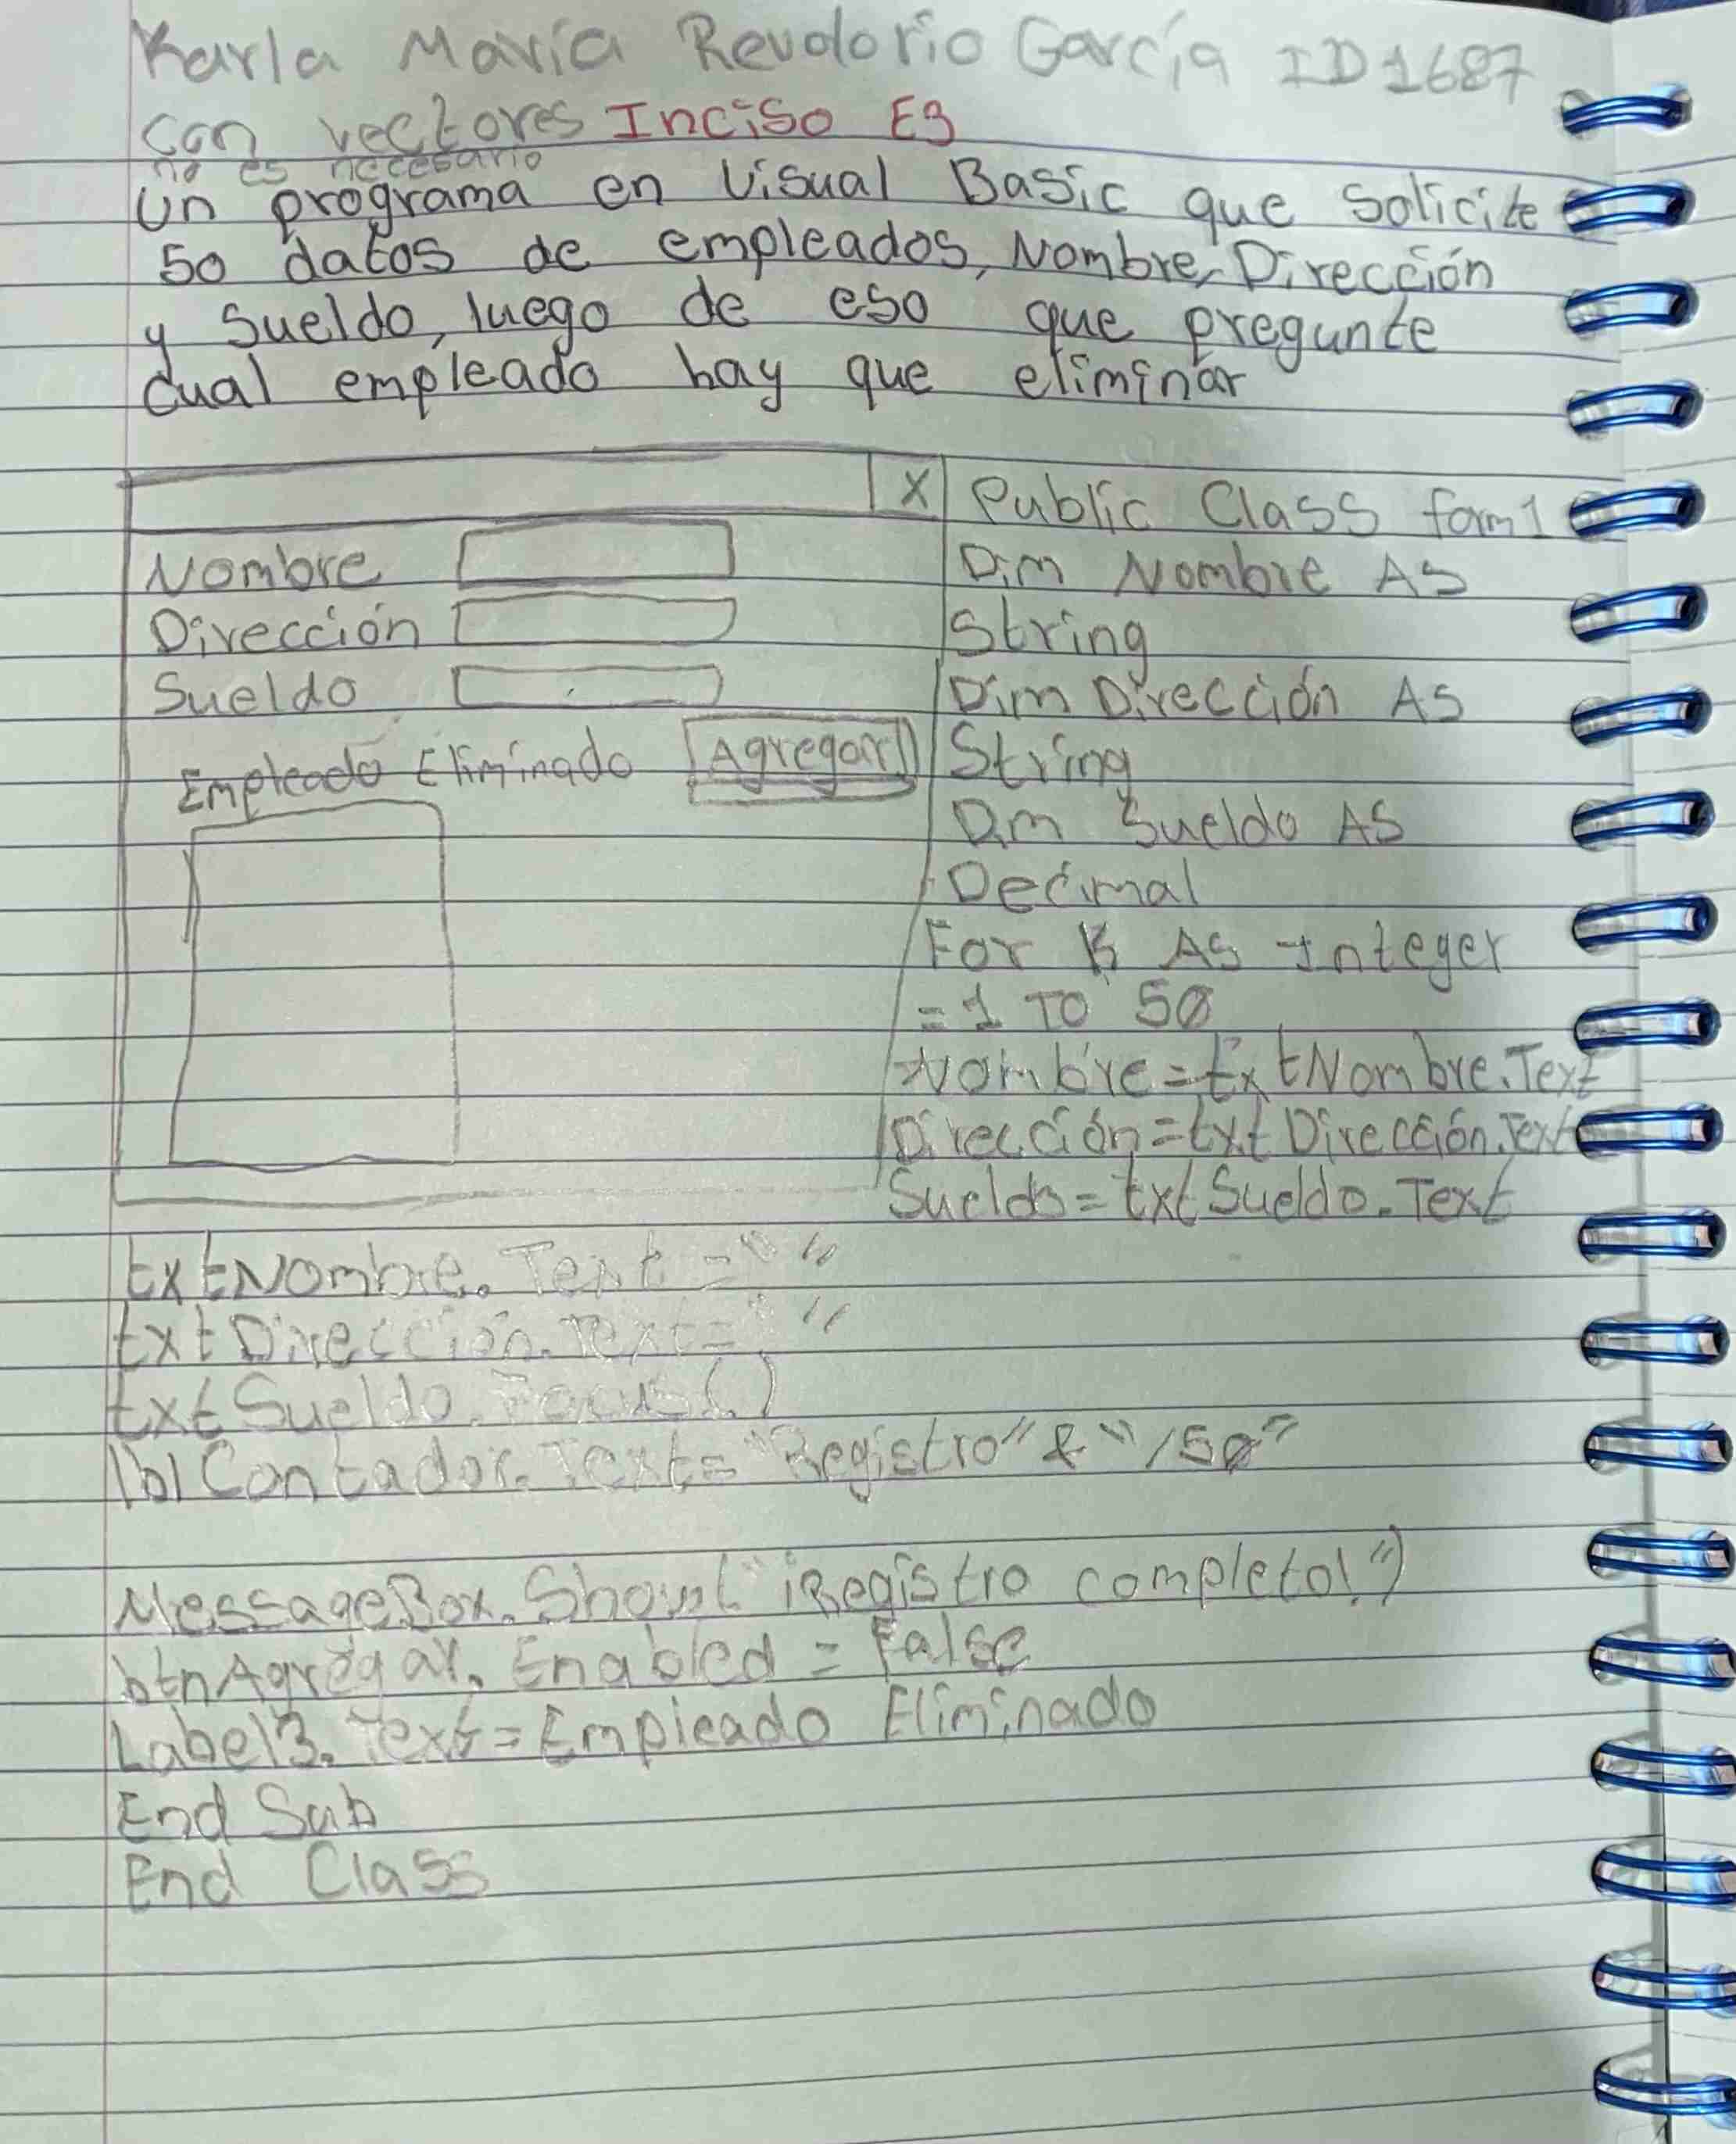 Karla María Revolorio García ID1687
con vectores Inciso E3
no es necesario
Un programa en Visual Basic que solicite
50 datos de empleados, Nombre, Dirección
y Sueldo, luego de eso que pregunte
cual empleado hay que eliminar
X
Nombre
Dirección
Sueldo
Empleado Eliminado Agregar
Public Class form1
Dim Nombre AS
String
Dim Dirección AS
String
Dim Sueldo AS
Decimal
For K AS Integer
= 1 TO 50
Nombre=txtNombre.Text
Dirección=txtDirección.Text
Sueldo=txtSueldo.Text
txtNombre.Text = " "
txtDirección.Text= " "
txtSueldo.Focus()
lblContador.Text= "Registro" & "/50"
MessageBox.Show("¡Registro completo!")
btnAgregar.Enabled = False
Label3.Text=Empleado Eliminado
End Sub
End Class